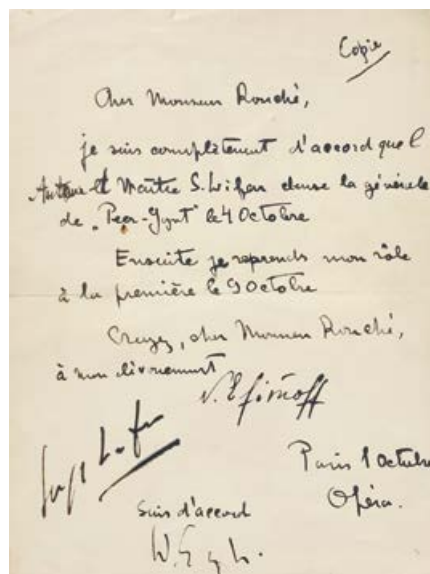 Copie
Cher Monsieur Rouché,
je suis complètement d'accord que l
Auteur et Maître S. Lifar danse la générale
de „Peer-Gynt" le 4 Octobre
Ensuite je reprends mon rôle
à la première le 9 Octobre
Croyez, cher Monsieur Rouché,
à mon dévouement
N. Efimoff
Paris 1 Octobre
Opéra.
Suis d'accord